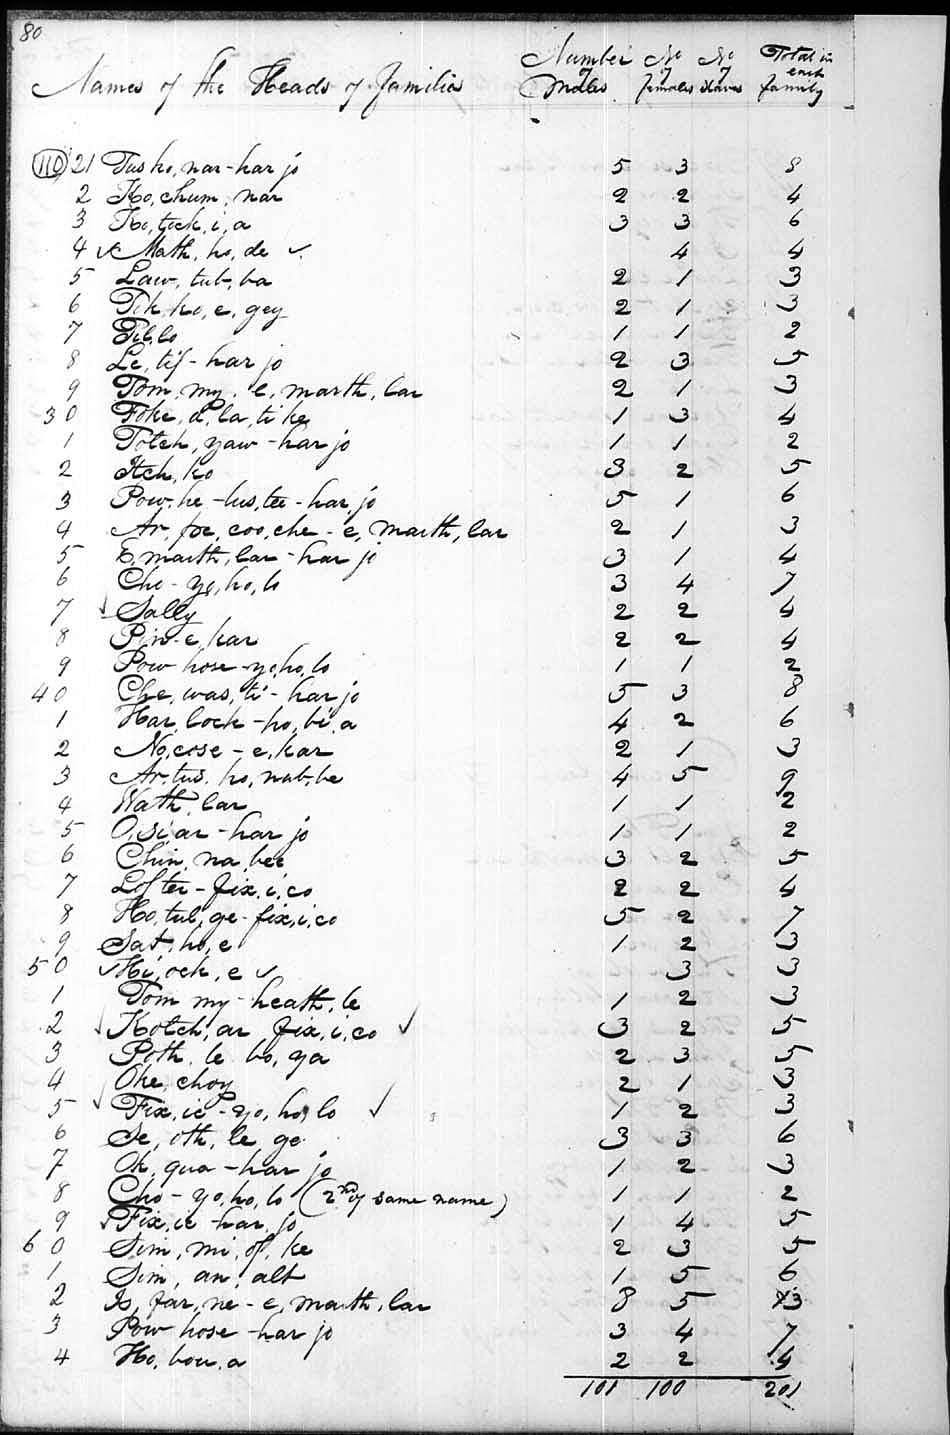 80
Names of the Heads of families Number of Males No of females No of slaves Total in each family
110 21 Tus ko, nar - har jo 5 3 8
2 Ko, chum, nar 2 2 4
3 Ko, tock, i, a 3 3 6
4 Math, ho, de 4 4
5 Law, tub, ba 2 1 3
6 Tok, ko, e, gey 2 1 3
7 Til, lo 1 1 2
8 Le, tif - har jo 2 3 5
9 Tom, my, e, marth, lar 2 1 3
30 Foke, d, la, ti ke 1 3 4
1 Totch, yaw - har jo 1 1 2
2 Itch, ko 3 2 5
3 Pow, he - lus, tee - har, jo 5 1 6
4 Ar, foe, coo, che - e, marth, lar 2 1 3
5 E, marth, lar - har jo 3 1 4
6 Cho - yo, ho, lo 3 4 7
7 Sally 2 2 4
8 Pin - e, kar 2 2 4
9 Pow hose - yo, ho, lo 1 1 2
40 Che, was, ti - har, jo 5 3 8
1 Har, lock - ho, bi, a 4 2 6
2 No, cose - e, kar 2 1 3
3 Ar, tus, ho, nub, be 4 5 9
4 Wath, lar 1 1 2
5 O, si ar - har jo 1 1 2
6 Chin, na, bee 3 2 5
7 Lof tee - fix, i, co 2 2 4
8 Ho, tul, ge - fix, i, co 5 2 7
9 Sat, ho, e 1 2 3
50 Hi, ock, e 3 3
1 Tom my - heath, le 1 2 3
2 Kotch, ar fix, i, co 3 2 5
3 Poth, le bo, ya 2 3 5
4 Oke, choy 2 1 3
5 Fix, ie - yo, ho, lo 1 2 3
6 Se, oth, le ge 3 3 6
7 Ok, qua - har jo 1 2 3
8 Cho - yo, ho, lo (2nd of same name) 1 1 2
9 Fix, ie - har, jo 1 4 5
60 Sim, mi, of, ke 2 3 5
1 Sim, an, alt 1 5 6
2 Is, far, ne - e, marth, lar 8 5 13
3 Pow hose - har jo 3 4 7
4 Ho, bou, a 2 2 4
101 100 201